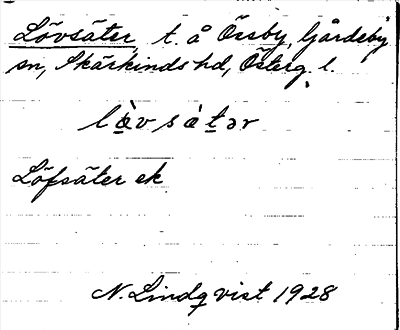 Lövsäter, t. å Össby, Gårdeby
sn, Skärkinds hd, Österg. l.
làv sátər
Löfsäter ek
N. Lindqvist 1928